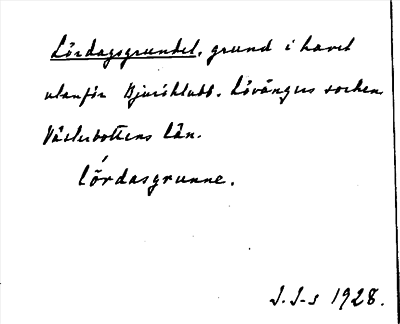 Lördagsgrundet, grund i havet
utanför Bjuröklubb. Lövångers socken.
Västerbottens län.
lórdasgrunne.
J.J-s 1928.